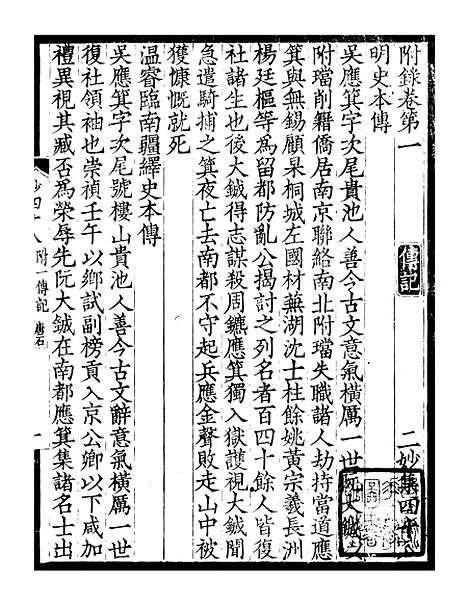 附錄卷第一 傳記 二妙集四
明史本傳
吳應箕字次尾貴池人善今古文意氣橫厲一世阮大鋮以
附璫削籍僑居南京聯絡南北附璫失職諸人劫持當道應
箕與無錫顧杲桐城左國材蕪湖沈士柱餘姚黃宗羲長洲
楊廷樞等爲留都防亂公揭討之列名者百四十餘人皆復
社諸生也後大鋮得志謀殺周鑣應箕獨入獄護視大鋮聞
急遣騎捕之箕夜亡去南都不守起兵應金聲敗走山中被
獲慷慨就死
溫睿臨南疆繹史本傳
吳應箕字次尾號樓山貴池人善今古文辭意氣橫厲一世
復社領袖也崇禎壬午以鄉試副榜貢入京公卿以下咸加
禮異視其臧否爲榮辱先阮大鋮在南都應箕集諸名士出
妙四十八 附一傳記 唐石 一